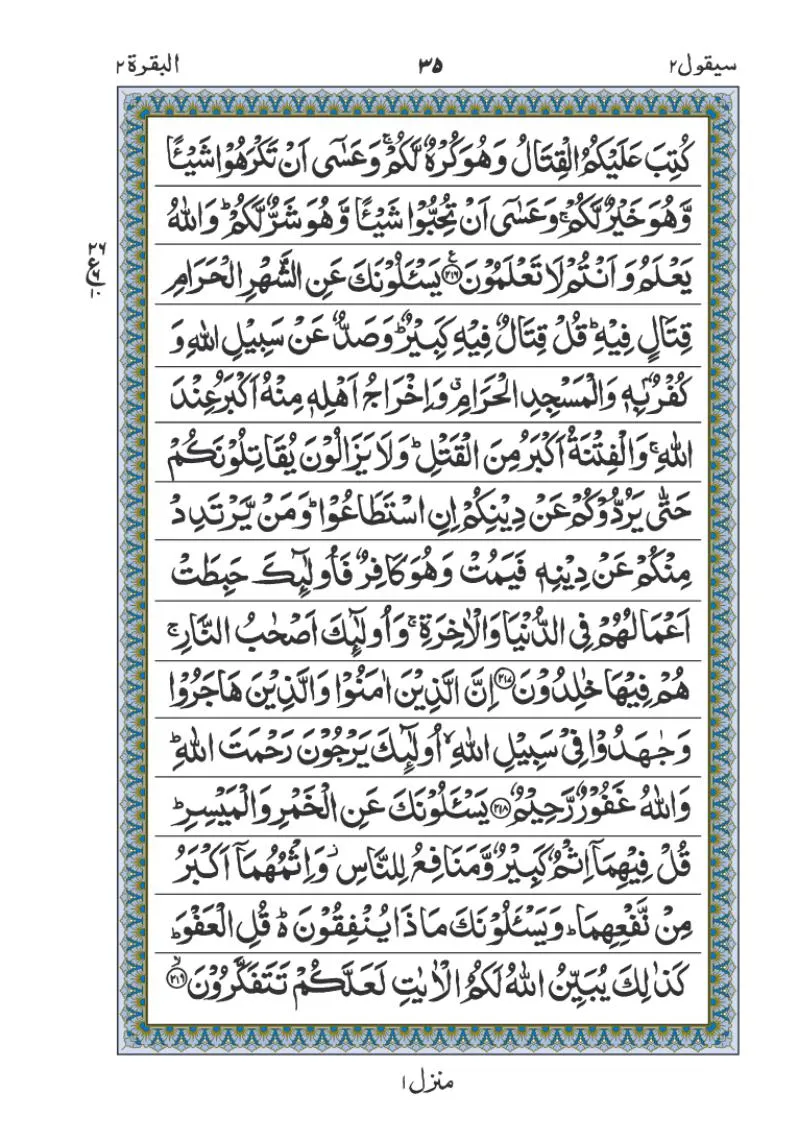 سيقول٢ ٣٥ البقرة٢
كُتِبَ عَلَيْكُمُ الْقِتَالُ وَهُوَ كُرْهٌ لَّكُمْ ۚ وَعَسٰۤى اَنْ تَكْرَهُوْا شَيْـًٔا
وَّهُوَ خَيْرٌ لَّكُمْ ۚ وَعَسٰۤى اَنْ تُحِبُّوْا شَيْـًٔا وَّهُوَ شَرٌّ لَّكُمْ ؕ وَاللّٰهُ
يَعْلَمُ وَاَنْتُمْ لَا تَعْلَمُوْنَ ﴿۲۱۶﴾ يَسْـَٔلُوْنَكَ عَنِ الشَّهْرِ الْحَرَامِ
٢٦ ع ٦ ١٠
قِتَالٍ فِيْهِ ؕ قُلْ قِتَالٌ فِيْهِ كَبِيْرٌ ؕ وَصَدٌّ عَنْ سَبِيْلِ اللّٰهِ وَ
كُفْرٌۢ بِهٖ وَالْمَسْجِدِ الْحَرَامِ ۗ وَاِخْرَاجُ اَهْلِهٖ مِنْهُ اَكْبَرُ عِنْدَ
اللّٰهِ ۚ وَالْفِتْنَةُ اَكْبَرُ مِنَ الْقَتْلِ ؕ وَلَا يَزَالُوْنَ يُقَاتِلُوْنَكُمْ
حَتّٰى يَرُدُّوْكُمْ عَنْ دِيْنِكُمْ اِنِ اسْتَطَاعُوْا ؕ وَمَنْ يَّرْتَدِدْ
مِنْكُمْ عَنْ دِيْنِهٖ فَيَمُتْ وَهُوَ كَافِرٌ فَاُولٰٓئِكَ حَبِطَتْ
اَعْمَالُهُمْ فِى الدُّنْيَا وَالْاٰخِرَةِ ۚ وَاُولٰٓئِكَ اَصْحٰبُ النَّارِ ۚ
هُمْ فِيْهَا خٰلِدُوْنَ ﴿۲۱۷﴾ اِنَّ الَّذِيْنَ اٰمَنُوْا وَالَّذِيْنَ هَاجَرُوْا
وَجٰهَدُوْا فِىْ سَبِيْلِ اللّٰهِ ۙ اُولٰٓئِكَ يَرْجُوْنَ رَحْمَتَ اللّٰهِ ؕ
وَاللّٰهُ غَفُوْرٌ رَّحِيْمٌ ﴿۲۱۸﴾ يَسْـَٔلُوْنَكَ عَنِ الْخَمْرِ وَالْمَيْسِرِ ؕ
قُلْ فِيْهِمَاۤ اِثْمٌ كَبِيْرٌ وَّمَنَافِعُ لِلنَّاسِ ۫ وَاِثْمُهُمَاۤ اَكْبَرُ
مِنْ نَّفْعِهِمَا ؕ وَيَسْـَٔلُوْنَكَ مَاذَا يُنْفِقُوْنَ ؕ۬ قُلِ الْعَفْوَ ؕ
كَذٰلِكَ يُبَيِّنُ اللّٰهُ لَكُمُ الْاٰيٰتِ لَعَلَّكُمْ تَتَفَكَّرُوْنَ ۙ﴿۲۱۹﴾
منزل١